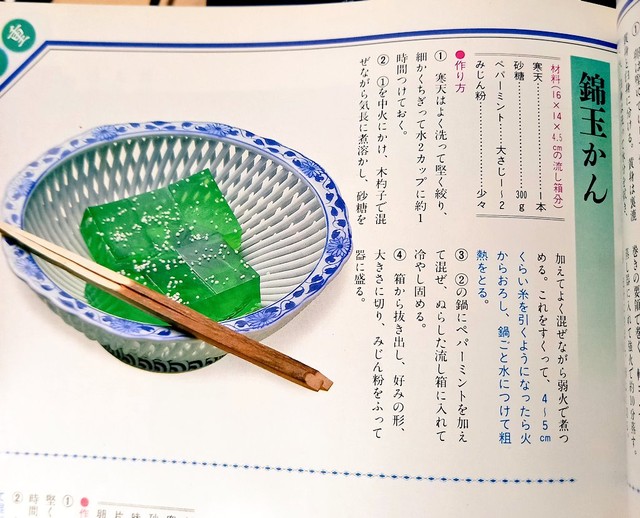 錦玉かん
材料(16×14×4.5cmの流し箱分)
寒天……………1本
砂糖……………300g
ペパーミント……大さじ1〜2
みじん粉……………少々
●作り方
① 寒天はよく洗って堅く絞り、
細かくちぎって水2カップに約1
時間つけておく。
② ①を中火にかけ、木杓子で混
ぜながら気長に煮溶かし、砂糖を
加えてよく混ぜながら弱火で煮つ
める。これをすくって、4〜5cm
くらい糸を引くようになったら火
からおろし、鍋ごと水につけて粗
熱をとる。
③ ②の鍋にペパーミントを加え
て混ぜ、ぬらした流し箱に入れて
冷やし固める。
④ 箱から抜き出し、好みの形、
大きさに切り、みじん粉をふって
器に盛る。